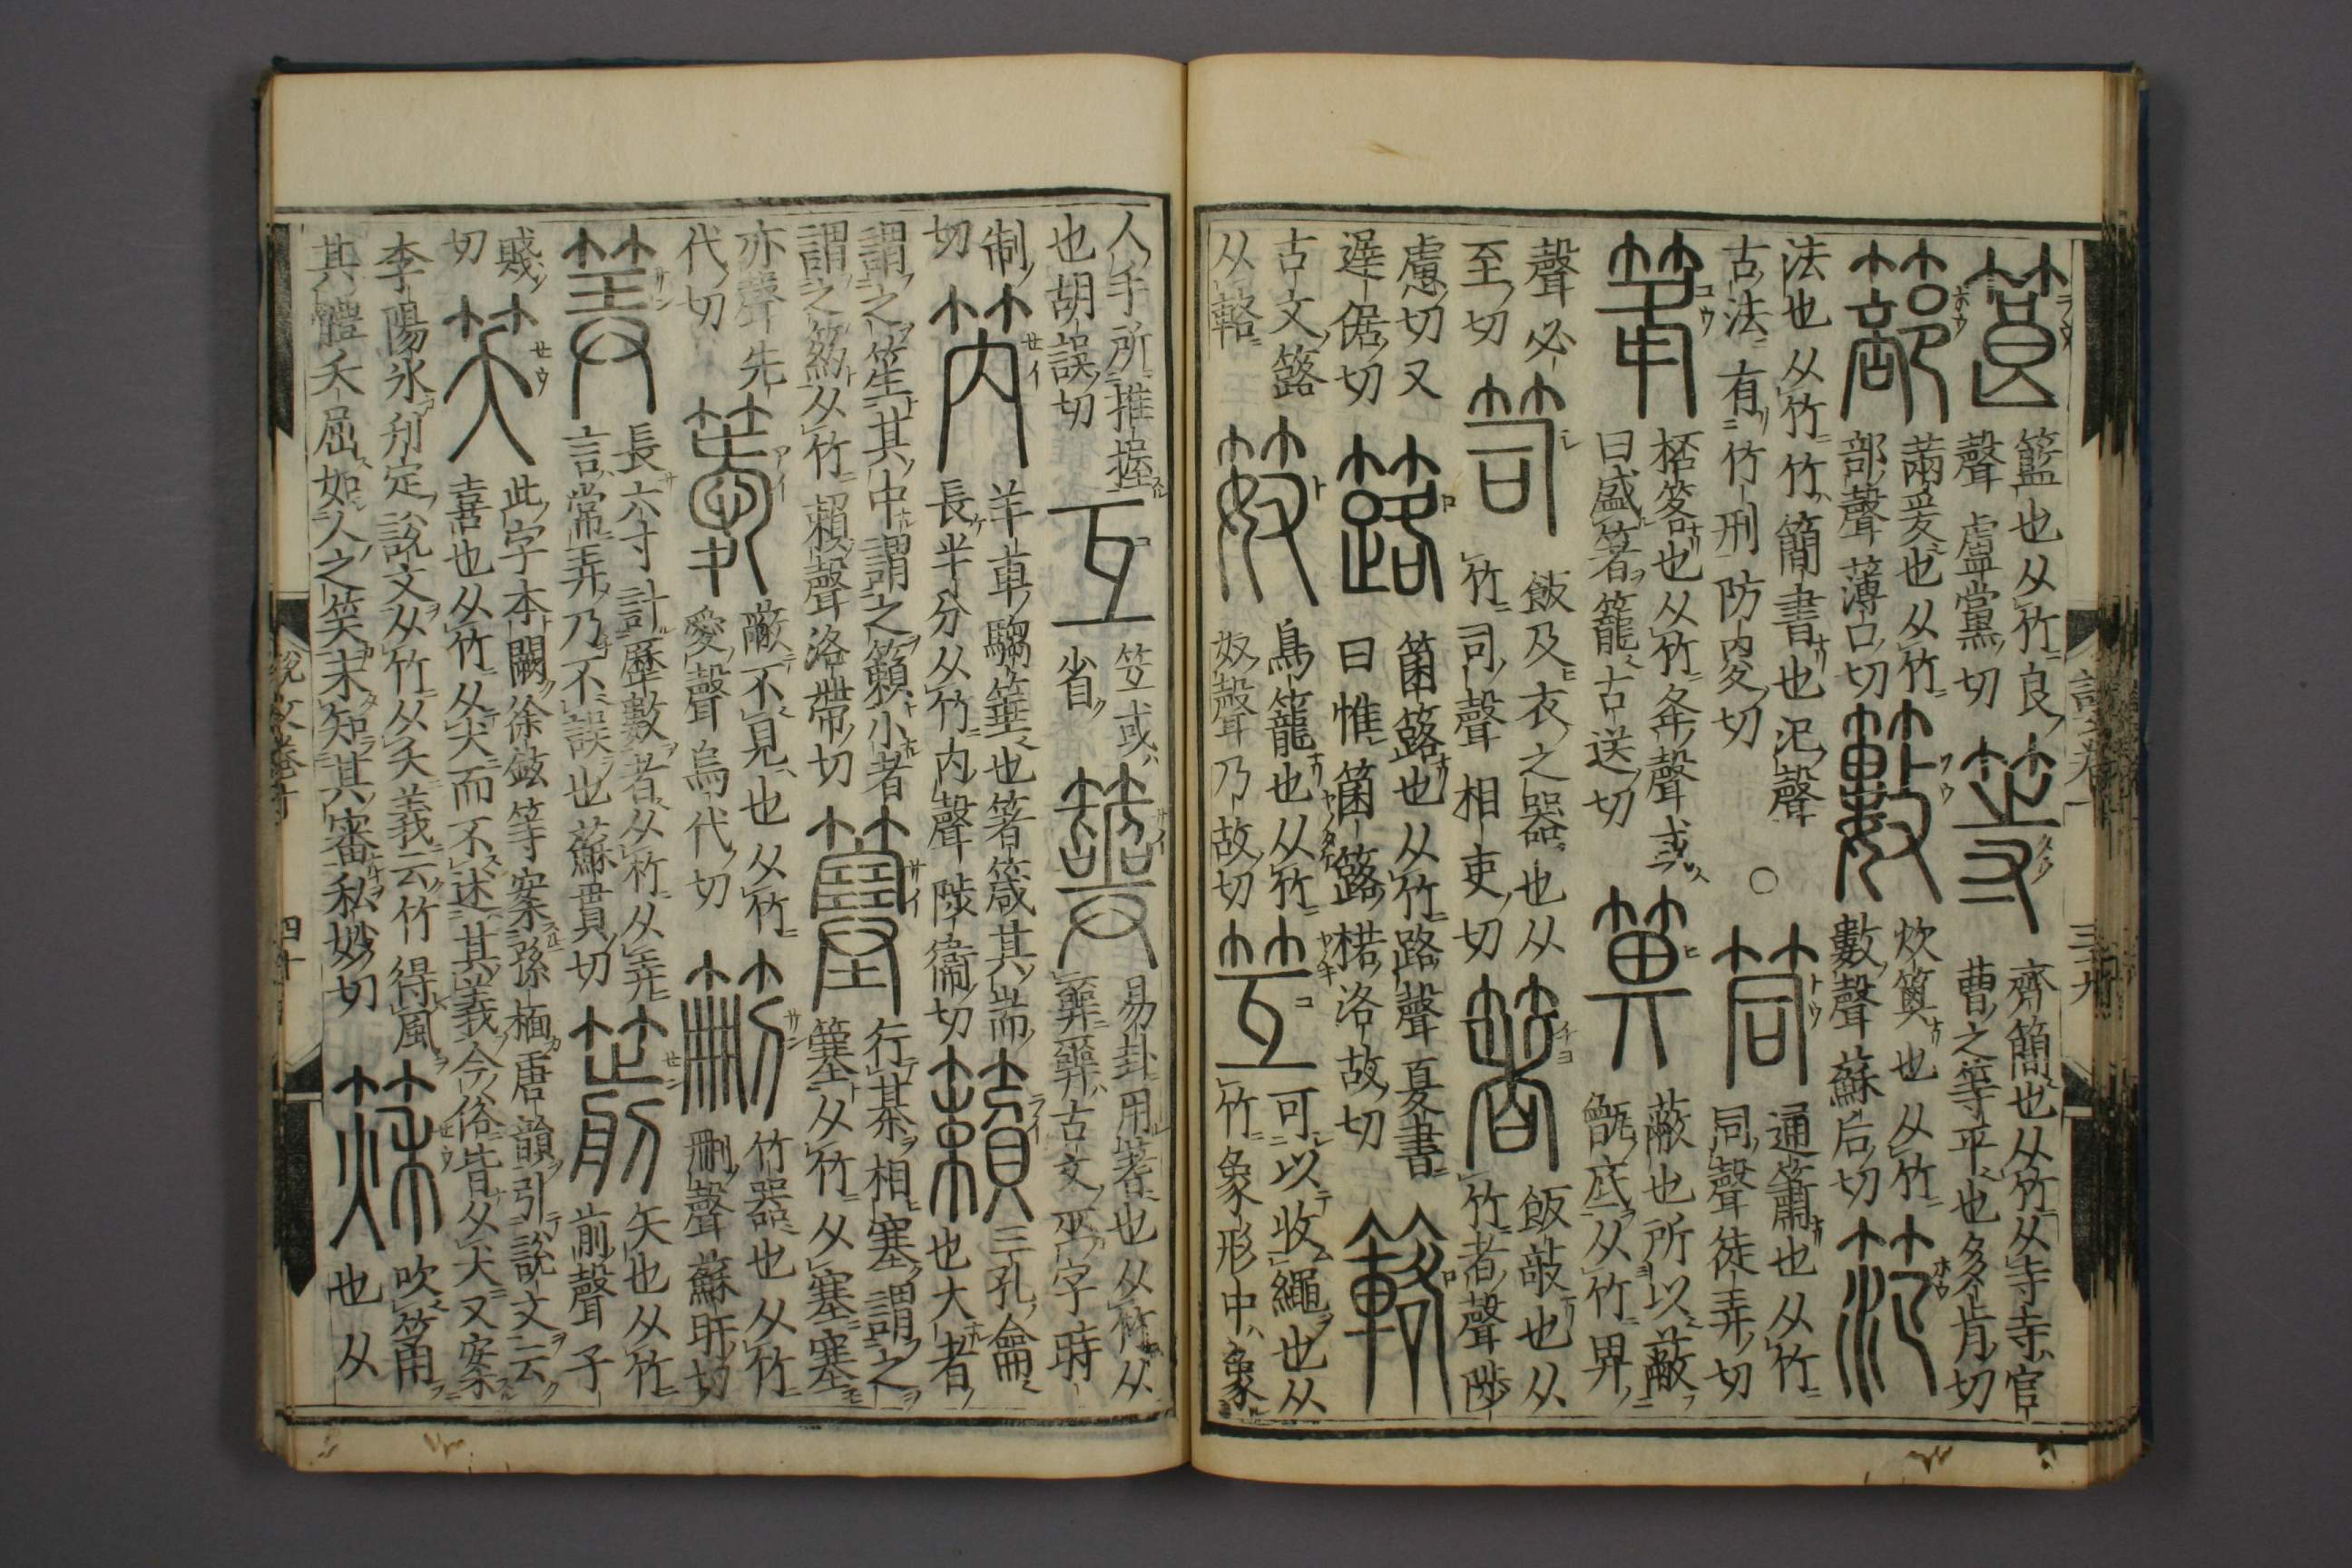 筤
籃也从竹良
聲 盧黨切
等
齊簡也从竹从寺寺官
曹之等平也 多肯切
篰
㒼爰也从竹
部聲 薄口切
籔
炊䉛也从竹
數聲 蘇后切
笵
法也从竹竹簡書也氾聲
古法有竹刑 防㚇切
○
筒
通簫也从竹
同聲 徒弄切
桮笿也从竹夅聲或
曰盛箸籠 古送切
箅
蔽也所以蔽
甑底从竹畀
聲 必
至切
笥
飯及衣之器也从
竹司聲 相吏切
箸
飯攲也从
竹者聲 陟
慮切又
遲倨切
簬
箘簬也从竹路聲夏書
曰惟箘簬楛 洛故切
簵
古文簬
从輅
笯
鳥籠也从竹
奴聲 乃故切
笠
可以收繩也从
竹象形中象
人手所推握
也 胡誤切
互
笠或
省
筮
易卦用蓍也从竹从
𢍮𢍮古文巫字 時
制
切
笍
羊車騶箠也箸箴其耑
長半分从竹内聲 陟衞切
籟
三孔龠
也大者
謂之笙其中謂之籟小者
謂之箹从竹賴聲 洛帶切
簺
行棊相塞謂之
簺从竹从塞塞
亦聲 先
代切
蔽不見也从竹
愛聲 烏代切
竹器也从竹
刪聲 蘇旰切
筭
長六寸計歷數者从竹从弄
言常弄乃不誤也 蘇貫切
箭
矢也从竹
前聲 子
賤
切
笑
此字本闕徐鉉等案孫愐唐韻引說文云
喜也从竹从犬而不述其義今俗皆从犬又案
李陽冰刋定說文从竹从夭義云竹得風
其體夭屈如人之笑未知其審 私妙切
篍
吹筩
也从
說文卷